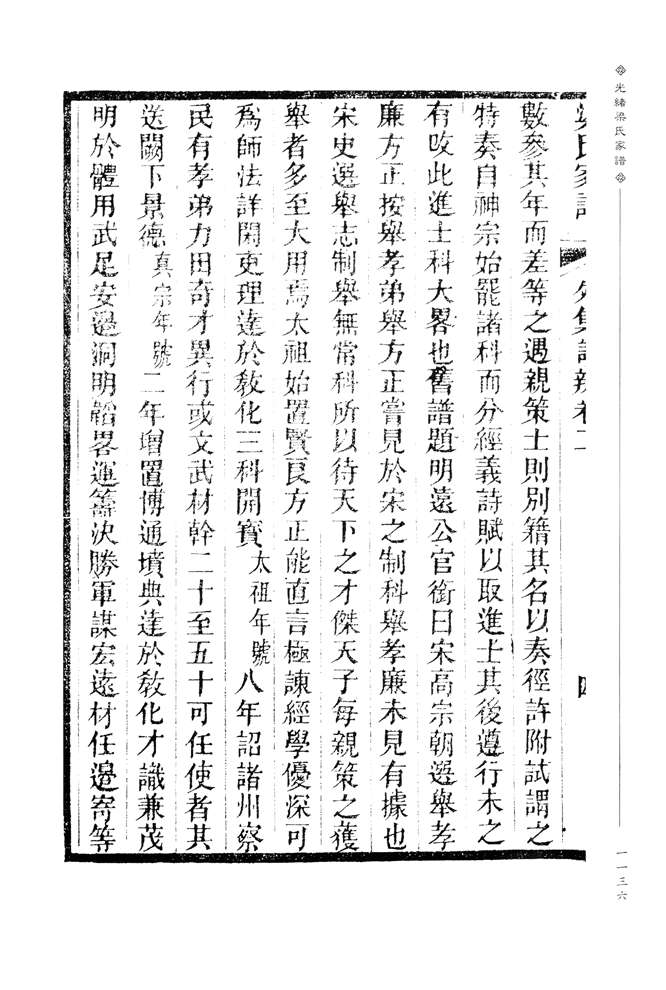 光緒梁氏家譜
一一三六
數參其年而差等之遇親策士則別籍其名以奏徑許附試謂之
特奏自神宗始罷諸科而分經義詩賦以取進士其後遵行未之
有攺此進士科大畧也舊譜題明遠公官銜曰宋高宗朝選舉孝
廉方正按舉孝弟舉方正嘗見於宋之制科舉孝廉未見有據也
宋史選舉志制舉無常科所以待天下之才傑天子每親策之獲
舉者多至大用焉太祖始置賢良方正能直言極諫經學優深可
爲師法詳閑吏理達於敎化三科開寳太祖年號八年詔諸州察
民有孝弟力田奇才異行或文武材幹二十至五十可任使者其
送闕下景德真宗年號二年增置博通墳典達於敎化才識兼茂
明於體用武足安邊洞明韜畧運籌決勝軍謀宏遠材任邊寄等